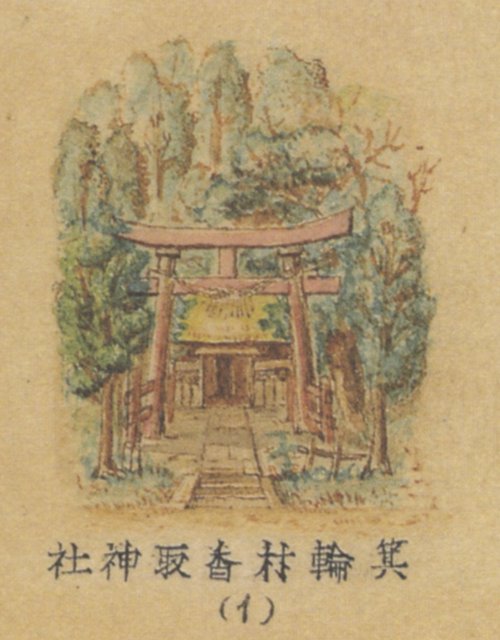 箕輪村香取神社
(1)